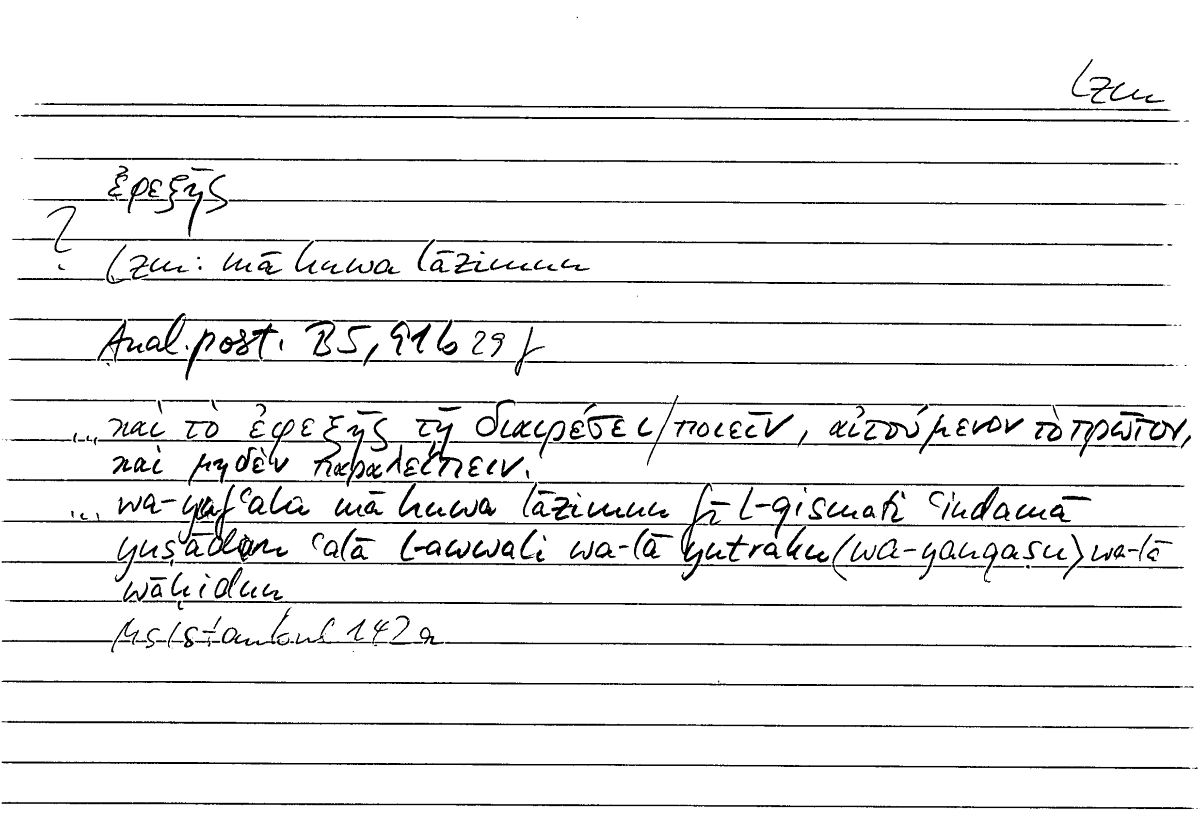 lzm
ἐφεξῆς
?
lzm: mā huwa lāzimun
Anal. post. B5, 91b 29 f
... καὶ τὸ ἐφεξῆς τῇ διαιρέσει/ποιεῖν, αἰτούμενον τὸ πρῶτον,
καὶ μηδὲν παραλείπειν.
... wa-yafʿala mā huwa lāzimun fī l-qismati ʿindamā
yuṣādaru ʿalā l-awwali wa-lā yutraku (wa-yanqaṣu) wa-lā
wāḥidun
Ms Istanbul 142a